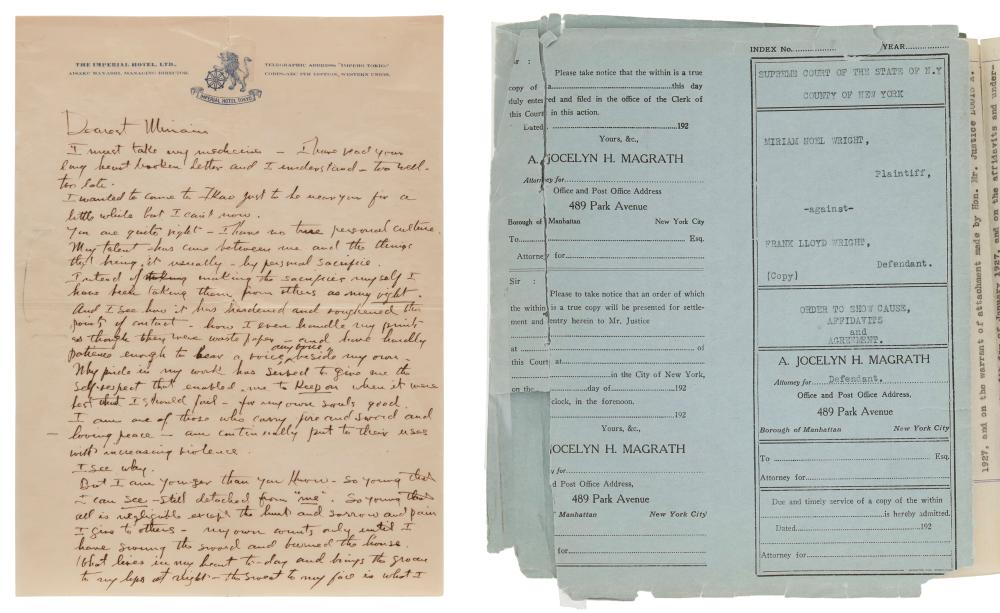 THE IMPERIAL HOTEL, LTD.,
AISAKU HAYASHI, MANAGING DIRECTOR.
TELEGRAPHIC ADDRESS "IMPEHO TOKIO"
CODES-ABC 5TH EDITION, WESTERN UNION.
IMPERIAL HOTEL TOKYO
Dearest Miriam
I must take my medicine – I have read your
long heart broken letter and I understand – too well-
too late.
I wanted to come to Ikao just to be near you for a
little while but I can't now.
You are quite right – I have no true personal culture.
My talent has come between me and the things
that bring it usually – by personal sacrifice.
Instead of making the sacrifices myself I
have been taking them from others as my right.
And I see how it has hardened and roughened the
points of contact – how I even handle my prints
as though they were waste paper – and have hardly
patience enough to hear a voice beside my own.
My pride in my work has served to give me the
self-respect that enabled me to keep on when it were
best that I should fail – for my own soul's good.
I am one of those who carry fire and sword and
loving peace – am continually put to their uses
with increasing violence.
I see why.
But I am younger than you know – so young that
I can see – still detached from "me". So young that
all is negligible except the hurt and sorrow and pain
I give to others – my own counts only until I
have swung the sword and burned the house.
What lives in my heart to-day and brings the groan
to my lips at night – the sweat to my face is what I
Sir :
Please take notice that the within is a true
copy of a this day
duly entered and filed in the office of the Clerk of
this Court in this action.
Dated, 192
Yours, &c.,
A. JOCELYN H. MAGRATH
Attorney for
Office and Post Office Address
489 Park Avenue
Borough of Manhattan New York City
To Esq.
Attorney for
Sir :
Please to take notice that an order of which
the within is a true copy will be presented for settle-
ment and entry herein to Mr. Justice
at of
this Court at
in the City of New York,
on the day of 192
clock, in the forenoon.
192
Yours, &c.,
JOCELYN H. MAGRATH
for
d Post Office Address,
489 Park Avenue
Manhattan New York City
for
INDEX No. YEAR
SUPREME COURT OF THE STATE OF N.Y
COUNTY OF NEW YORK
MIRIAM NOEL WRIGHT,
Plaintiff,
-against-
FRANK LLOYD WRIGHT,
Defendant.
(Copy)
ORDER TO SHOW CAUSE,
AFFIDAVITS
and
AGREEMENT.
A. JOCELYN H. MAGRATH
Attorney for Defendant.
Office and Post Office Address,
489 Park Avenue
Borough of Manhattan New York City
To Esq.
Attorney for
Due and timely service of a copy of the within
is hereby admitted.
Dated 192
Attorney for
1927, and on the warrant of attachment made by Hon. Mr. Justice LOUIS A.
January 1927, and on the affidavits and under-